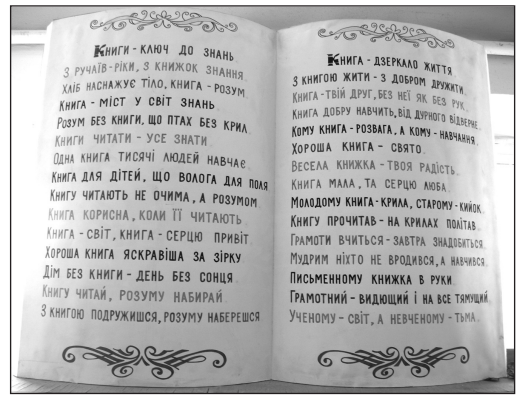 Книги - ключ до знань
З ручаїв-ріки, з книжок знання.
Хліб наснажує тіло, книга - розум.
Книга - міст у світ знань.
Розум без книги, що птах без крил.
Книги читати - усе знати.
Одна книга тисячі людей навчає.
Книга для дітей, що волога для поля
Книгу читають не очима, а розумом.
Книга корисна, коли її читають.
Книга - світ, книга - серцю привіт.
Хороша книга яскравіша за зірку
Дім без книги - день без сонця.
Книгу читай, розуму набирай.
З книгою подружишся, розуму наберешся
Книга - дзеркало життя.
З книгою жити - з добром дружити.
Книга - твій друг, без неї як без рук.
Книга добру навчить, від дурного відверне.
Кому книга - розвага, а кому - навчання.
Хороша книга - свято.
Весела книжка - твоя радість.
Книга мала, та серцю люба.
Молодому книга - крила, старому - кийок.
Книгу прочитав - на крилах політав.
Грамоти вчиться - завтра знадобиться.
Мудрим ніхто не вродився, а навчився.
Письменному книжка в руки.
Грамотний - видющий і на все тямущий.
Ученому - світ, а невченому - тьма.